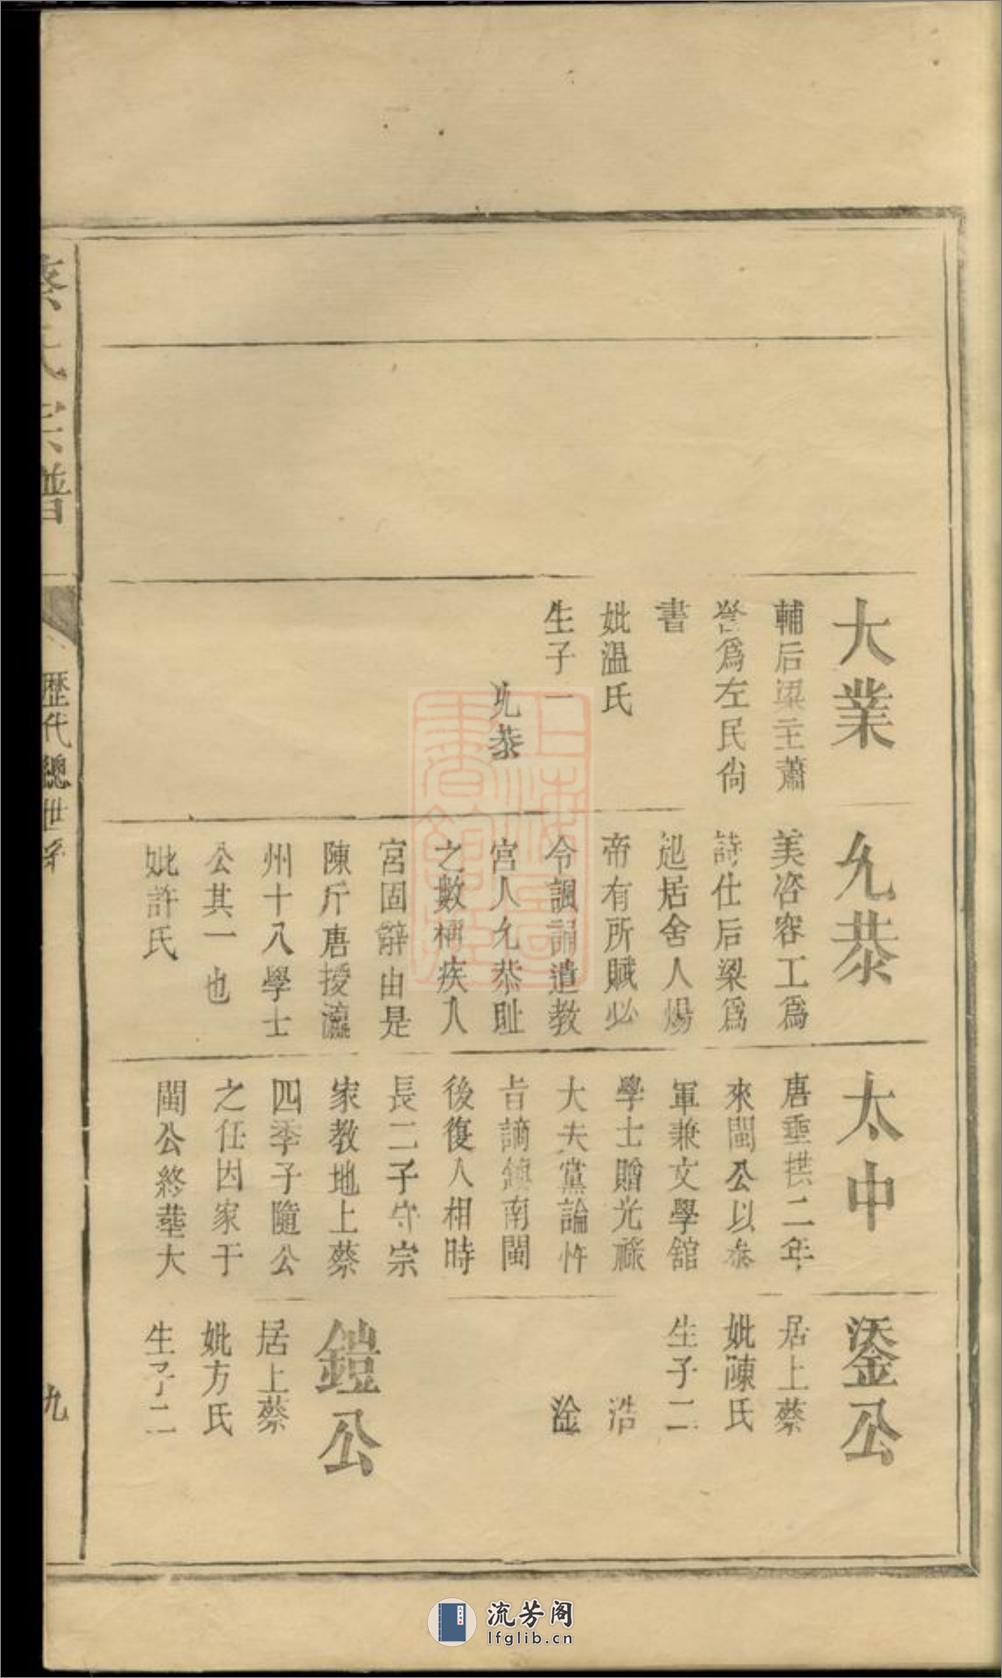 大業
輔后梁主蕭
詧爲左民尙
書
妣温氏
生子一
允恭
允恭
美咨容工爲
詩仕后梁爲
起居舍人煬
帝有所賦必
令諷誦遣教
宮人允恭耻
之數稱疾入
宮固辭由是
陳斤唐授瀛
州十八學士
公其一也
妣許氏
太中
唐垂拱二年
來閩公以叅
軍兼文學舘
學士贈光祿
大夫黨論忤
旨謫鎮南閩
後復入相時
長二子守宗
家教地上蔡
四季子隨公
之任因家于
閩公終塟大
鋈公
居上蔡
妣陳氏
生子二
浩
淦
鎧公
居上蔡
妣方氏
生子二
蔡氏宗譜
歷代總世系
九
上海圖書館藏
流芳阁
lfglib.cn